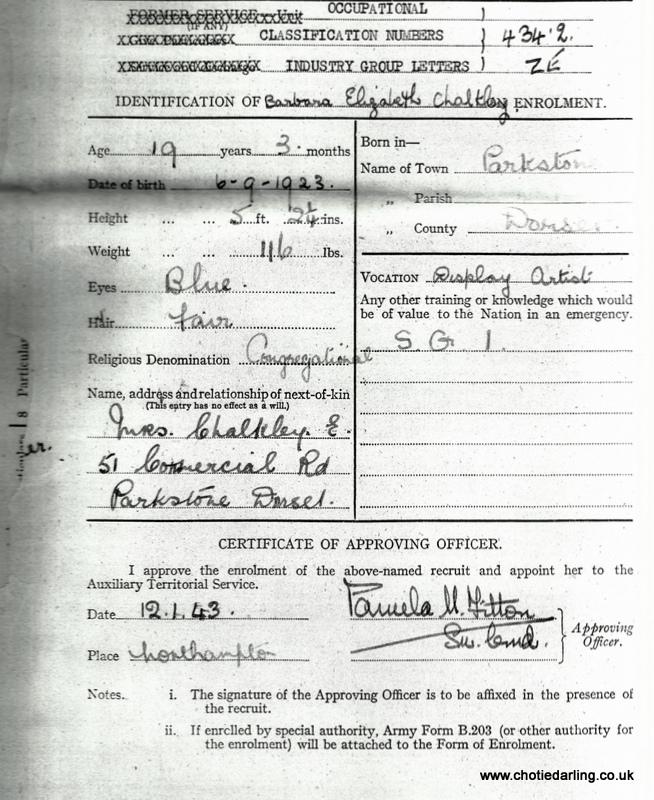 OCCUPATIONAL
(IF ANY)
CLASSIFICATION NUMBERS 434'2.
INDUSTRY GROUP LETTERS ZE
IDENTIFICATION OF Barbara Elizabeth Chalkley ENROLMENT.
Age 19 years 3 months
Date of birth 6-9-1923.
Height ... ... 5 ft. 2½ ins.
Weight ... 116 lbs.
Eyes Blue.
Hair Fair
Religious Denomination Congregational
Name, address and relationship of next-of-kin
(This entry has no effect as a will.)
Mrs. Chalkley. E.
51 Commercial Rd
Parkstone Dorset.
Born in—
Name of Town Parkston
„ Parish
„ County Dorset.
VOCATION Display Artist
Any other training or knowledge which would
be of value to the Nation in an emergency.
S. G 1.
8 Particular
er.
CERTIFICATE OF APPROVING OFFICER.
I approve the enrolment of the above-named recruit and appoint her to the
Auxiliary Territorial Service.
Date 12.1.43.
Pamela M. Fitton
Place Northampton
Approving
Officer.
Notes. i. The signature of the Approving Officer is to be affixed in the presence of
the recruit.
ii. If enrolled by special authority, Army Form B.203 (or other authority for
the enrolment) will be attached to the Form of Enrolment.
www.chotiedarling.co.uk